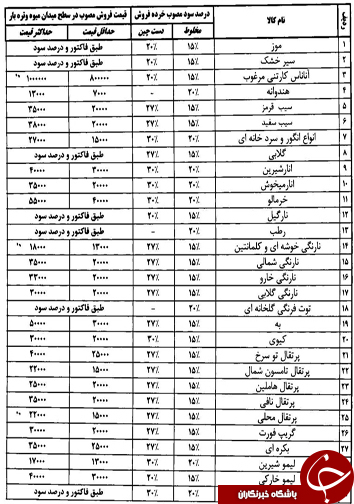 ردیف نام کالا درصد سود مصوب خرده فروش قیمت فروش مصوب در سطح میدان میوه وتره بار
مخلوط دست چین حداقل قیمت حداکثر قیمت
۱ موز ۱۵٪ ۲۰٪ طبق فاکتور و درصد سود
۲ سیر خشک ۱۵٪ ۲۰٪ طبق فاکتور و درصد سود
۳ آناناس کارتنی مرغوب ۱۵٪ ۲۰٪ ۸۰۰۰۰۰ ۱۰۰۰۰۰۰
۴ هندوانه ۲۰٪ - ۷۰۰۰ ۱۳۰۰۰
۵ سیب قرمز ۱۵٪ ۲۷٪ ۲۰۰۰۰ ۳۵۰۰۰
۶ سیب سفید ۱۵٪ ۲۷٪ ۲۰۰۰۰ ۳۸۰۰۰
۷ انواع انگور و سرد خانه ای ۲۰٪ ۳۰٪ ۱۵۰۰۰ ۲۷۰۰۰
۸ گلابی ۱۵٪ ۲۷٪ طبق فاکتور و درصد سود
۹ انارشیرین ۲۰٪ ۳۰٪ ۳۰۰۰۰ ۴۰۰۰۰
۱۰ انارمیخوش ۲۰٪ ۳۰٪ ۲۰۰۰۰ ۳۵۰۰۰
۱۱ خرمالو ۲۰٪ ۳۰٪ ۴۰۰۰۰ ۵۵۰۰۰
۱۲ نارگیل ۱۵٪ ۲۰٪ طبق فاکتور و درصد سود
۱۳ رطب ۲۰٪ - طبق فاکتور و درصد سود
۱۴ نارنگی خوشه ای و کلمانتین ۱۵٪ ۲۷٪ ۱۳۰۰۰ ۱۸۰۰۰
۱۵ نارنگی شمالی ۱۵٪ ۲۷٪ ۲۰۰۰۰ ۳۵۰۰۰
۱۶ نارنگی خارو ۱۵٪ ۲۷٪ ۲۰۰۰۰
۱۷ نارنگی گلابی ۱۵٪ ۲۷٪ ۲۰۰۰۰ ۳۰۰۰۰
۱۸ توت فرنگی گلخانه ای ۲۰٪ - طبق فاکتور و درصد سود
۱۹ به ۱۵٪ ۲۷٪ ۳۰۰۰۰ ۵۰۰۰۰
۲۰ کیوی ۱۵٪ ۲۰٪ ۲۰۰۰۰ ۳۰۰۰۰
۲۱ پرتقال تو سرخ ۱۵٪ ۲۷٪ ۲۵۰۰۰ ۴۰۰۰۰
۲۲ پرتقال تامسون شمال ۱۵٪ ۲۷٪ ۱۵۰۰۰
۲۳ پرتقال هاملین ۱۵٪ ۲۷٪ ۲۰۰۰۰ ۲۵۰۰۰
۲۴ پرتقال نافی ۱۵٪ ۲۷٪ ۲۰۰۰۰ ۳۵۰۰۰
۲۵ پرتقال محلی ۱۵٪ ۲۷٪ ۱۵۰۰۰
۲۶ گریپ فورت ۱۵٪ ۲۷٪ ۲۰۰۰۰ ۳۰۰۰۰
۲۷ بکره ای ۱۵٪ ۲۷٪ ۲۵۰۰۰ ۳۵۰۰۰
لیمو شیرین ۲۰٪ ۳۰٪ ۱۳۰۰۰ ۱۷۰۰۰
لیمو خارکی ۱۵٪ ۲۷٪ ۳۰۰۰۰ ۴۰۰۰۰
۲۰٪ ۳۰٪ طبق فاکتور و درصد سود
باشگاه خبرنگاران